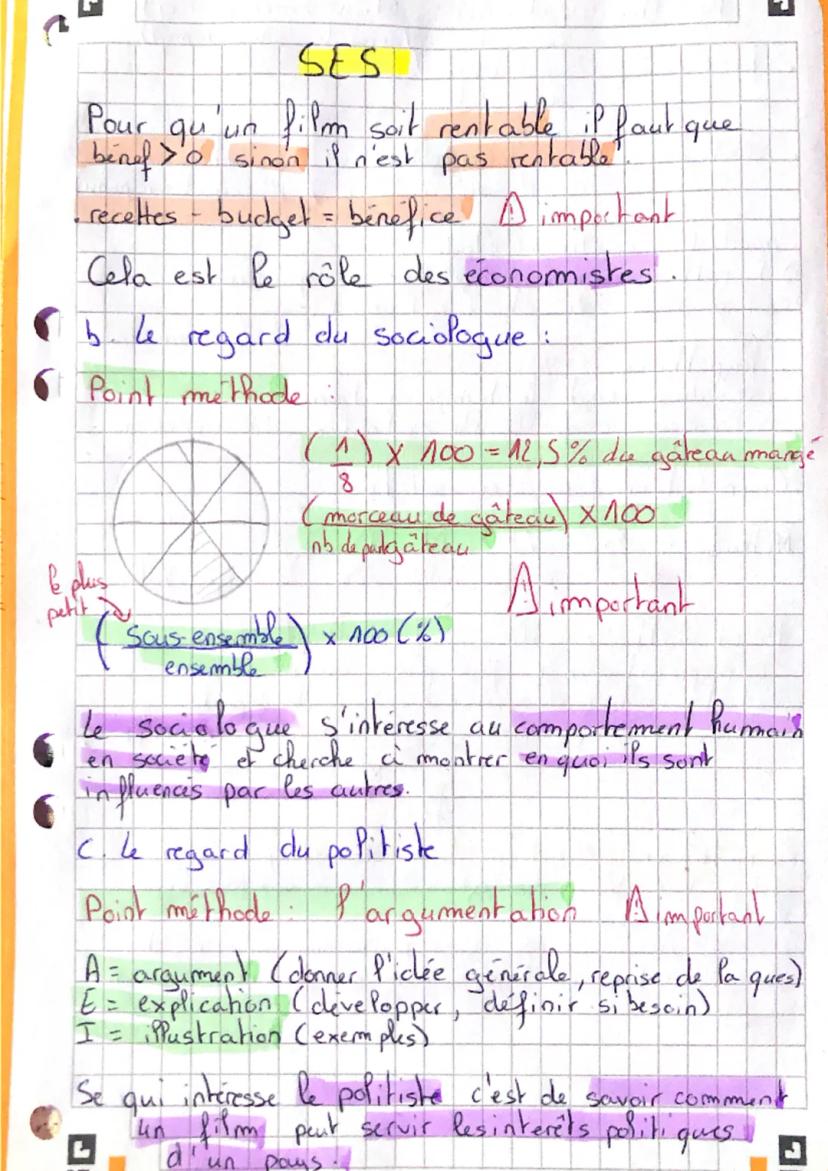 SES
Pour qu'un film soit rentable il faut que
bénef > 0 sinon il n'est pas rentable.
recettes - budget = bénéfice ⚠ important
Cela est le rôle des économistes.
b. Le regard du sociologue :
Point méthode :
(1/8) x 100 = 12,5% du gâteau mangé
(morceau de gâteau) x 100
nb de part gâteau
le plus
petit
⚠ important
(Sous-ensemble) x 100 (%)
ensemble
Le sociologue s'intéresse au comportement humain
en société et cherche à montrer en quoi ils sont
influencés par les autres.
C. Le regard du politiste
Point méthode : l'argumentation ⚠ important
A = argument (donner l'idée générale, reprise de la ques)
E = explication (développer, définir si besoin)
I = illustration (exemples)
Se qui intéresse le politiste c'est de savoir comment
un film peut servir les interêts politiques
d'un pays.